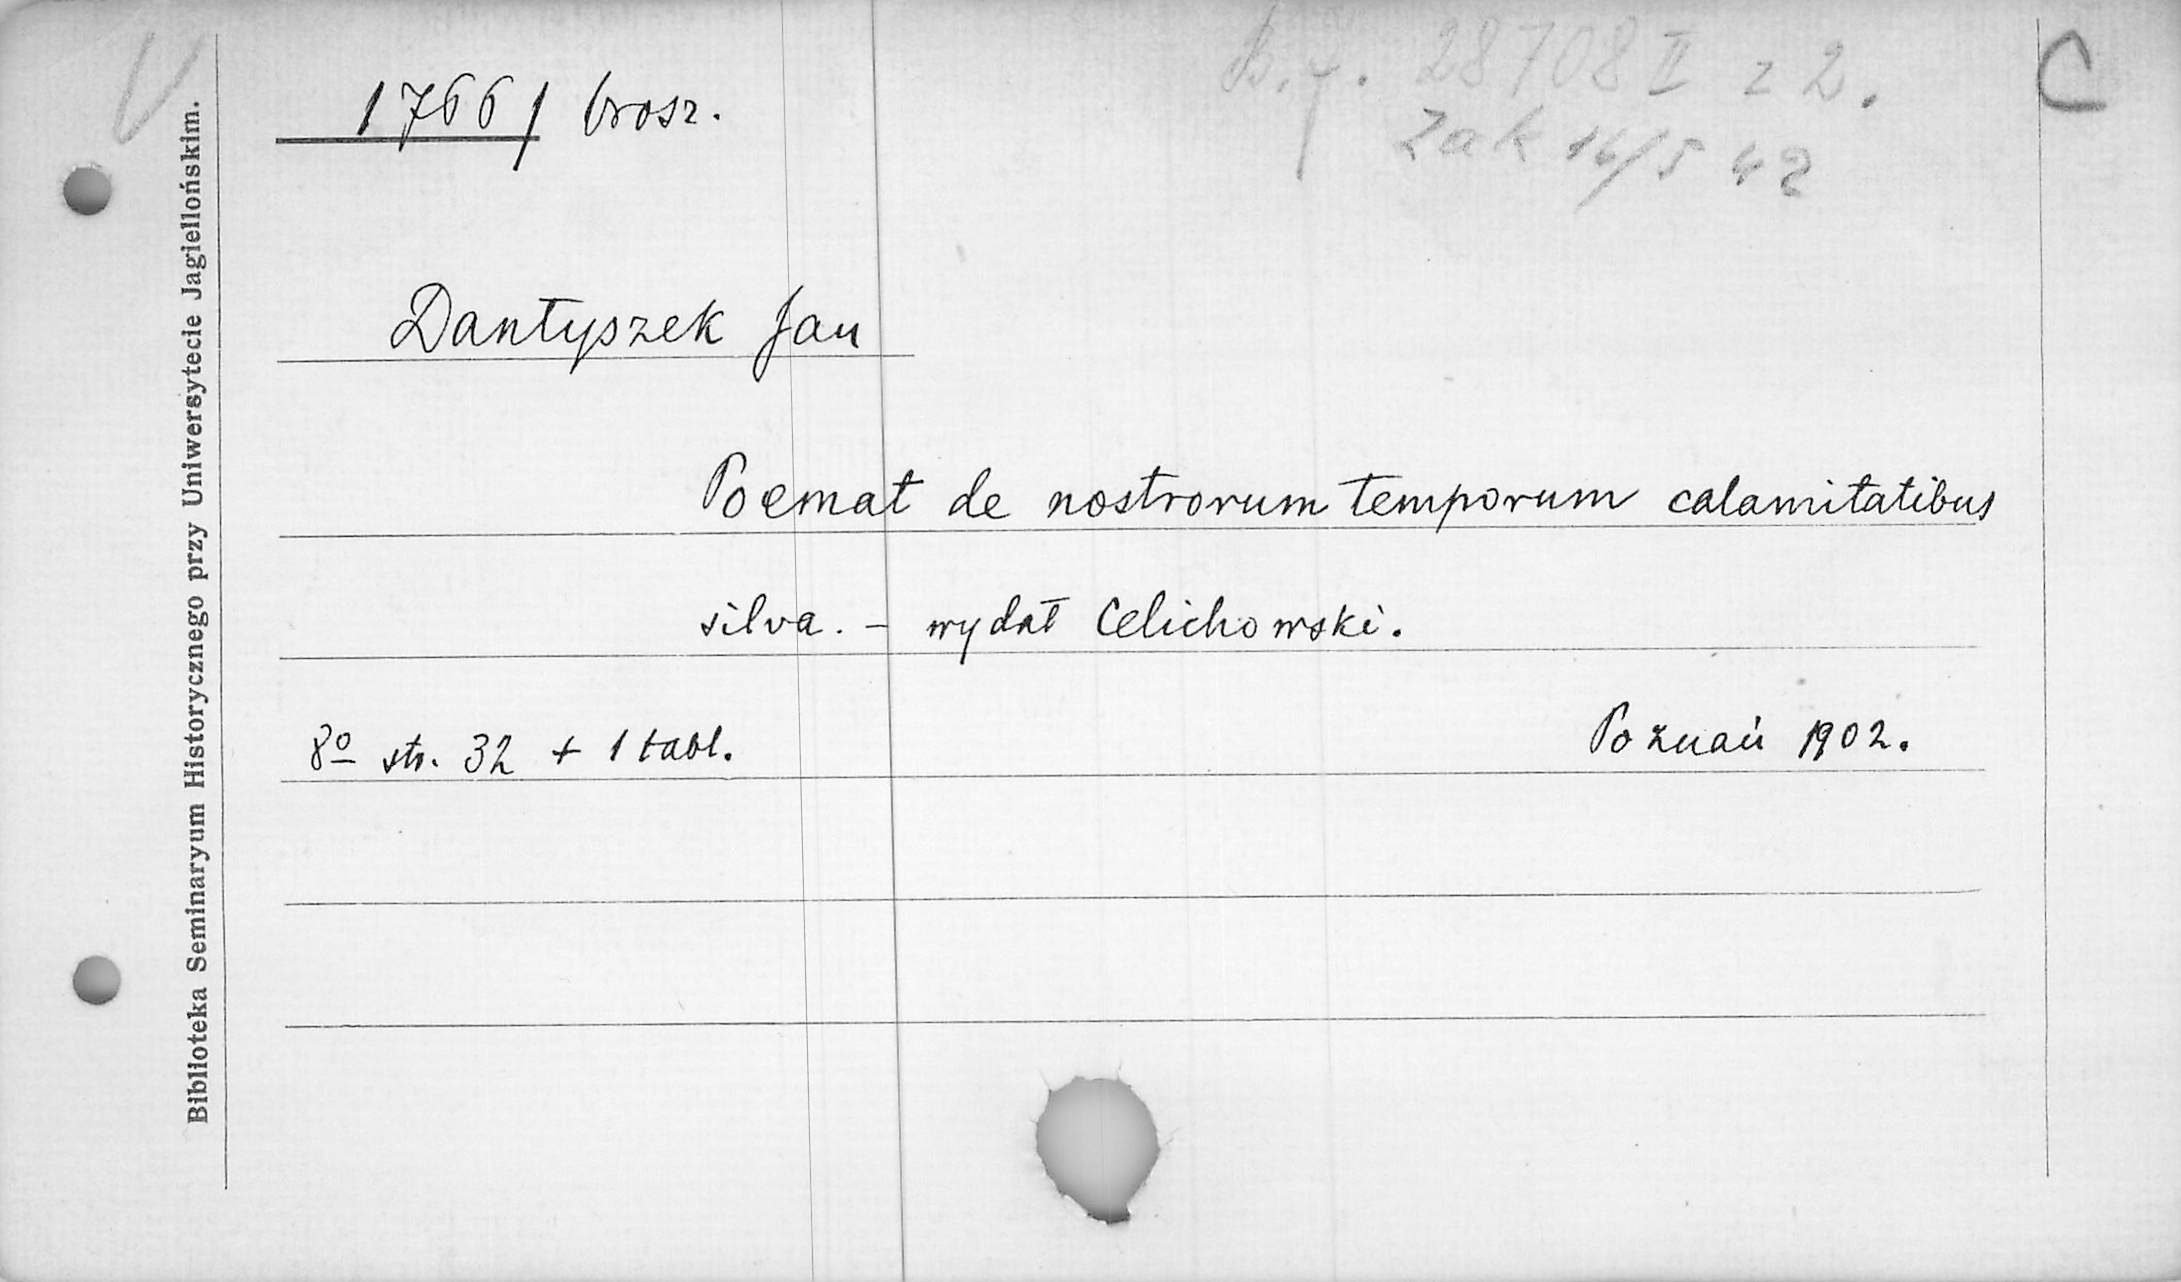 V
B.J. 28708 II z 2.
C
1766/ brosz.
Zak 16/5 42
Dantyszek Jan
Poemat de nostrorum temporum calamitatibus
silva. – wydał Celichowski.
8º str. 32 + 1 tabl.
Poznań 1902.
Biblioteka Seminaryum Historycznego przy Uniwersytecie Jagiellońskim.